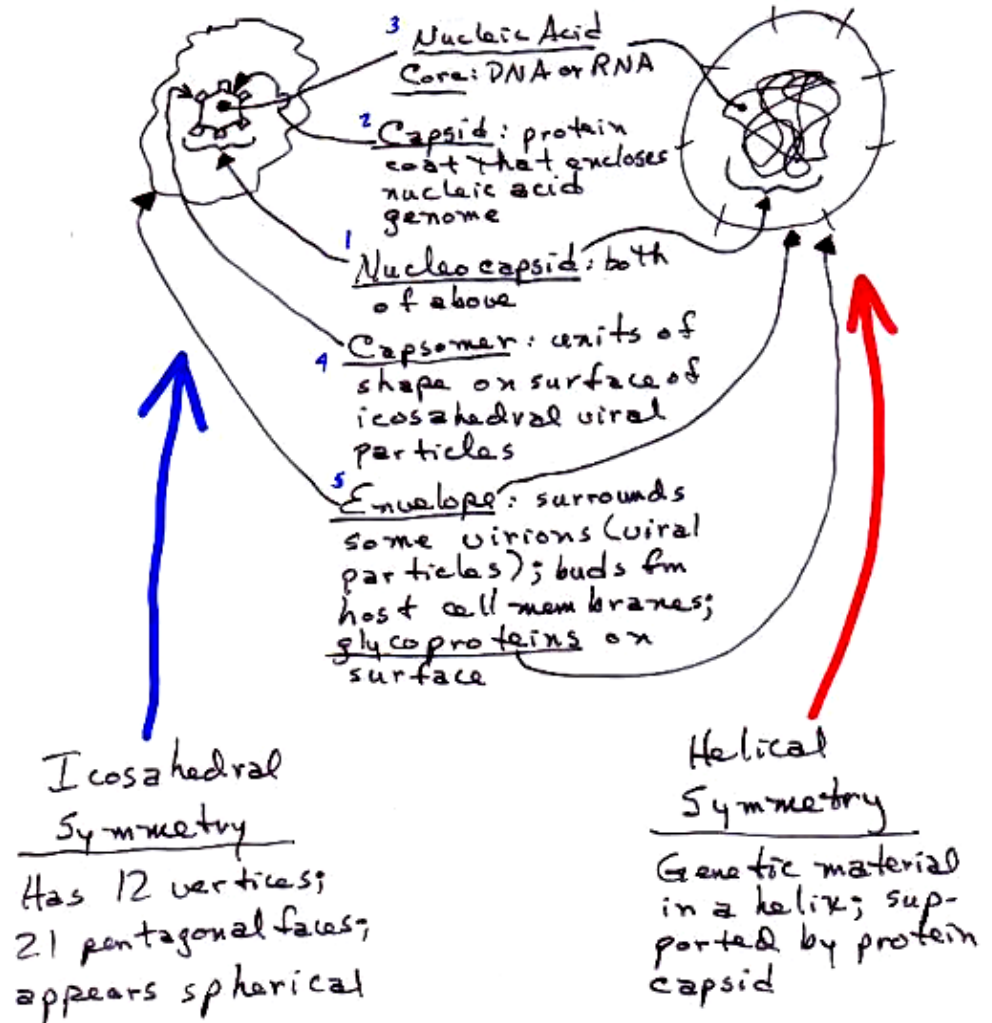 3 Nucleic Acid
Core: DNA or RNA
2 Capsid: protein
coat that encloses
nucleic acid
genome
1 Nucleocapsid: both
of above
4 Capsomer: units of
shape on surface of
icosahedral viral
particles
5 Envelope: surrounds
some virions (viral
particles); buds fm
host cell membranes;
glycoproteins on
surface
Icosahedral
Symmetry
Has 12 vertices;
21 pentagonal faces;
appears spherical
Helical
Symmetry
Genetic material
in a helix; sup-
ported by protein
capsid